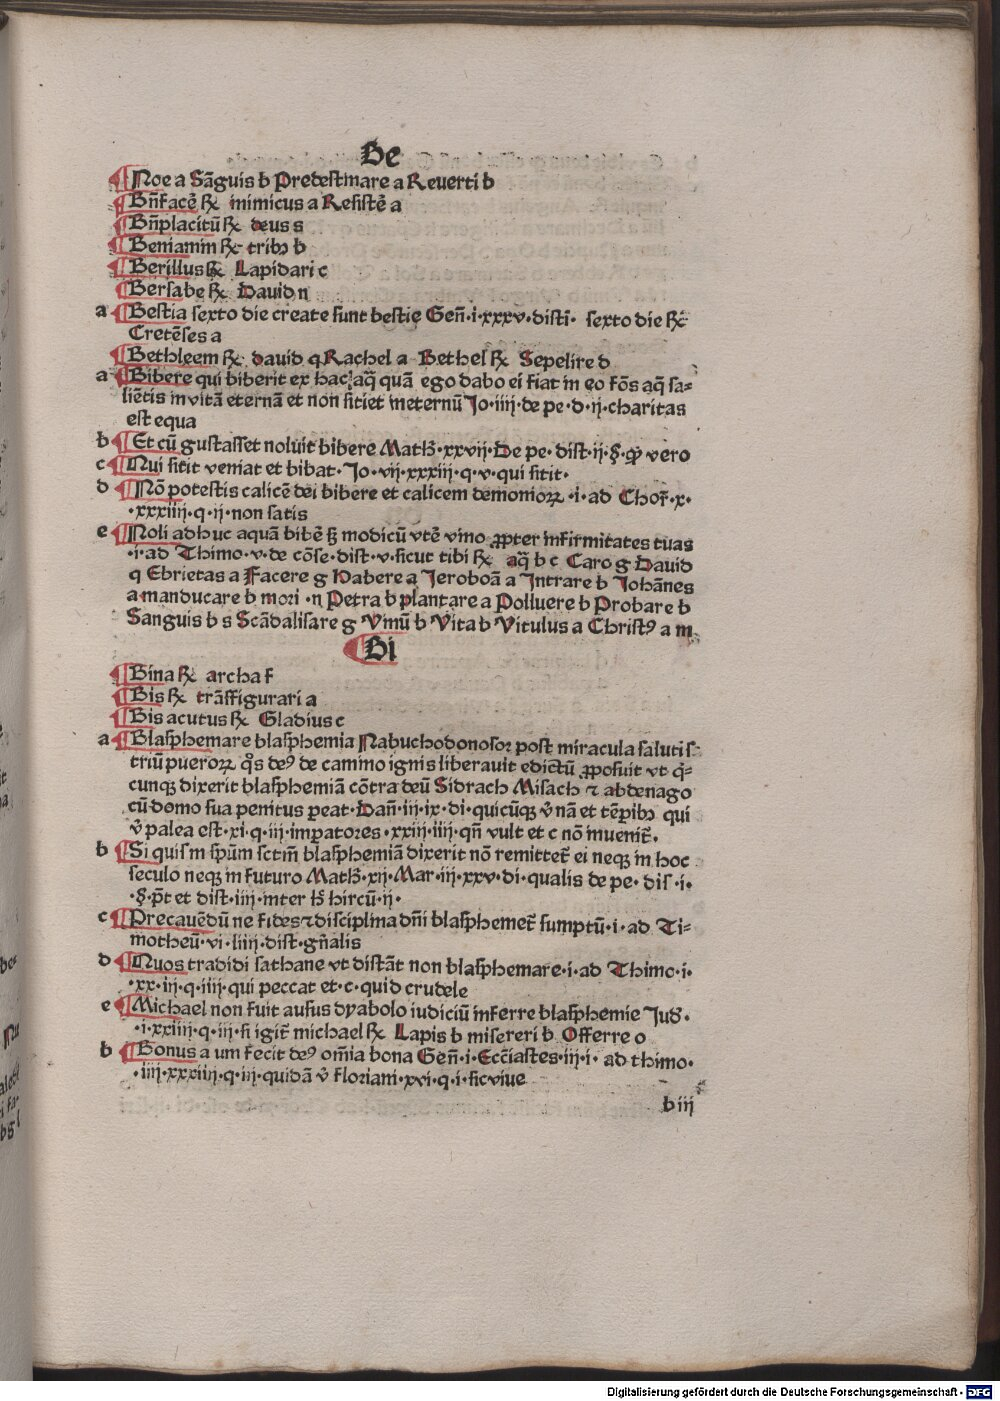 Be
Noe a Sãguis b Predestinare a Reuerti b
Bñfacẽ R̃ inimicus a Resistẽ a
Bñplacitũ R̃ deus s
Beniamin R̃ tribꝫ b
Berillus R̃ Lapidari c
Bersabe R̃ Dauid n
a Bestia sexto die create sunt bestie Geñ·i·xxxv·disti· sexto die R̃
Cretẽses a
Bethleem R̃ dauid q Rachel a Bethel R̃ Sepelire d
a Bibere qui biberit ex hac aq̃ quã ego dabo ei fiat in eo fõs aq̃ sa⸗
liẽtis in vitã eternã et non sitiet ineternũ Jo·iiij·de pe·d·ij·charitas
est equa
b Et cũ gustasset noluit bibere Matħ·xxvij·De pe·dist·ij·§·ꝙ vero
c Qui sitit veniat et bibat·Jo·vij·xxxiij·q·v·qui sitit·
d Nõ potestis calicẽ dei bibere et calicem demonioꝝ·i·ad Chor̃·x·
·xxxiiij·q·ij·non satis
e Noli adhuc aquã bibẽ sꝫ modicũ vtẽ vino ꝓpter infirmitates tuas
·i·ad Thimo·v·de cõse·dist·v·sicut tibi R̃ aq̃ b c Caro g Dauid
q Ebrietas a Facere g Habere a Jeroboã a Intrare b Johãnes
a manducare b mori·n Petra b plantare a Polluere b Probare b
Sanguis b s Scãdalisare g Vinũ b Vita b Vitulus a Christꝰ a m
Bi
Bina R̃ archa f
Bis R̃ trãsfigurari a
Bis acutus R̃ Gladius c
a Blasphemare blasphemia Nabuchodonosoꝛ post miracula salutis
triũ pueroꝝ q̃s deꝰ de camino ignis liberauit edictũ ꝓposuit vt q̃⸗
cunqꝫ dixerit blasphemiã cõtra deũ Sidrach Misach ⁊ abdenago
cũ domo sua penitus ꝑeat·Dañ·iij·ix·di·quicũqꝫ ṽ nã et tẽꝑibꝫ qui
ṽ palea est·xi·q·iij·imꝑatores·xxiij·iiij·qñ vult et c nõ inuenit̃.
b Si quis in spũm sctm̃ blasphemiã dixerit nõ remittet̃ ei neqꝫ in hoc
seculo neqꝫ in futuro Matħ·xij·Mar·iij·xxv·di·qualis de pe·dis·i·
·§·p̃t et dist·iiij·inter ħ hircũ·ij·
c Precauẽdũ ne fides ⁊ disciplina dñi blasphemet̃ sumptũ·i·ad Ti⸗
motheũ·vi·liiij·dist·gñalis
d Quos tradidi sathane vt distãt non blasphemare·i·ad Thimo·i·
·xx·iij·q·iiij·qui peccat et·c·quid crudele
e Michael non fuit ausus dyabolo iudiciũ inferre blasphemie Jud̃·
·i·xxiiij·q·iij·si igit̃ michael R̃ Lapis b misereri b Offerre o
b Bonus a um fecit deꝰ om̃ia bona Geñ·i·Ecc̃iastes·iij·i· ad thimo·
·iiij·xxxiiij·q·iij·quidã ṽ floriani·xvi·q·i·sic viue
b iij
Digitalisierung gefördert durch die Deutsche Forschungsgemeinschaft - DFG